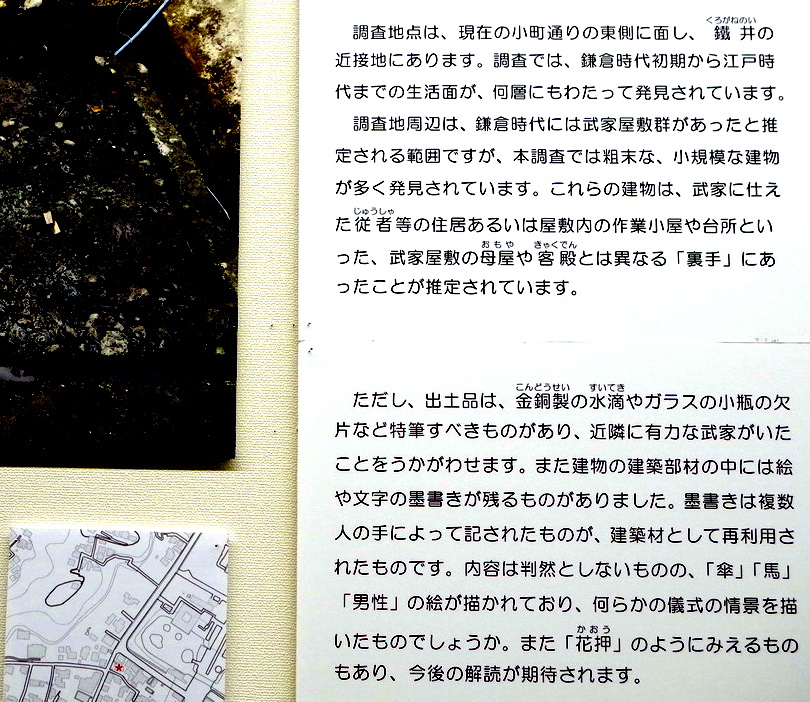 調査地点は、現在の小町通りの東側に面し、鐵井の
くろがねのい
近接地にあります。調査では、鎌倉時代初期から江戸時
代までの生活面が、何層にもわたって発見されています。
調査地周辺は、鎌倉時代には武家屋敷群があったと推
定される範囲ですが、本調査では粗末な、小規模な建物
が多く発見されています。これらの建物は、武家に仕え
じゅうしゃ
た従者等の住居あるいは屋敷内の作業小屋や台所とい
おもや きゃくでん
った、武家屋敷の母屋や客殿とは異なる「裏手」にあ
ったことが推定されています。
こんどうせい すいてき
ただし、出土品は、金銅製の水滴やガラスの小瓶の欠
片など特筆すべきものがあり、近隣に有力な武家がいた
ことをうかがわせます。また建物の建築部材の中には絵
や文字の墨書きが残るものがありました。墨書きは複数
人の手によって記されたものが、建築材として再利用さ
れたものです。内容は判然としないものの、「傘」「馬」
「男性」の絵が描かれており、何らかの儀式の情景を描
かおう
いたものでしょうか。また「花押」のようにみえるもの
もあり、今後の解読が期待されます。